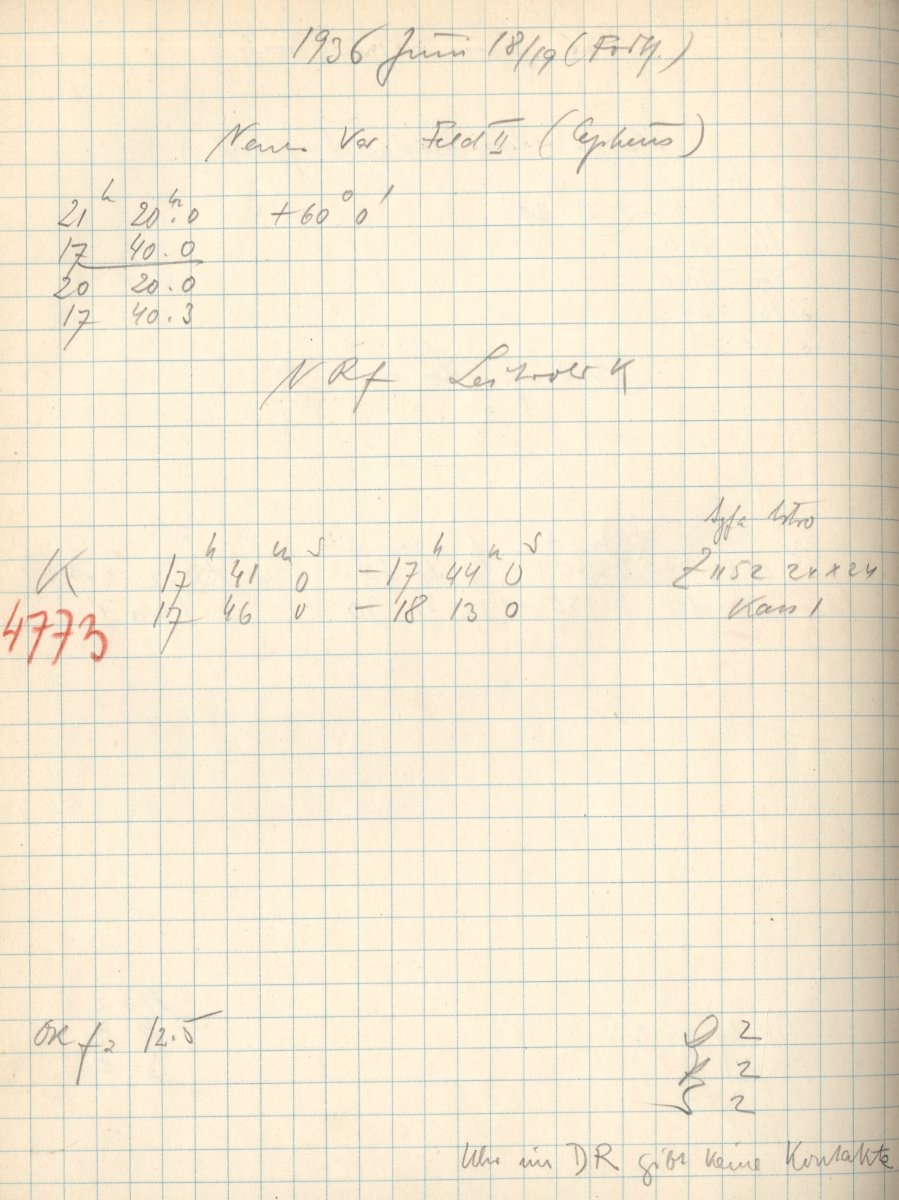 1936 Juni 18/19 (Forts.)
Neuer Var. Feld II (Cepheus)
21 h 20 m.0 +60° 0'
17 40.0
20 20.0
17 40.3
NRf Leitrohr K
Agfa Astro
K 17 h 41 m 0 s −17 h 44 m 0 s Z1152 24×24
4773 17 46 0 −18 13 0 Kass 1
OK f = 12.5
D 2
R 2
S 2
Uhr im DR gibt keine Kontakte